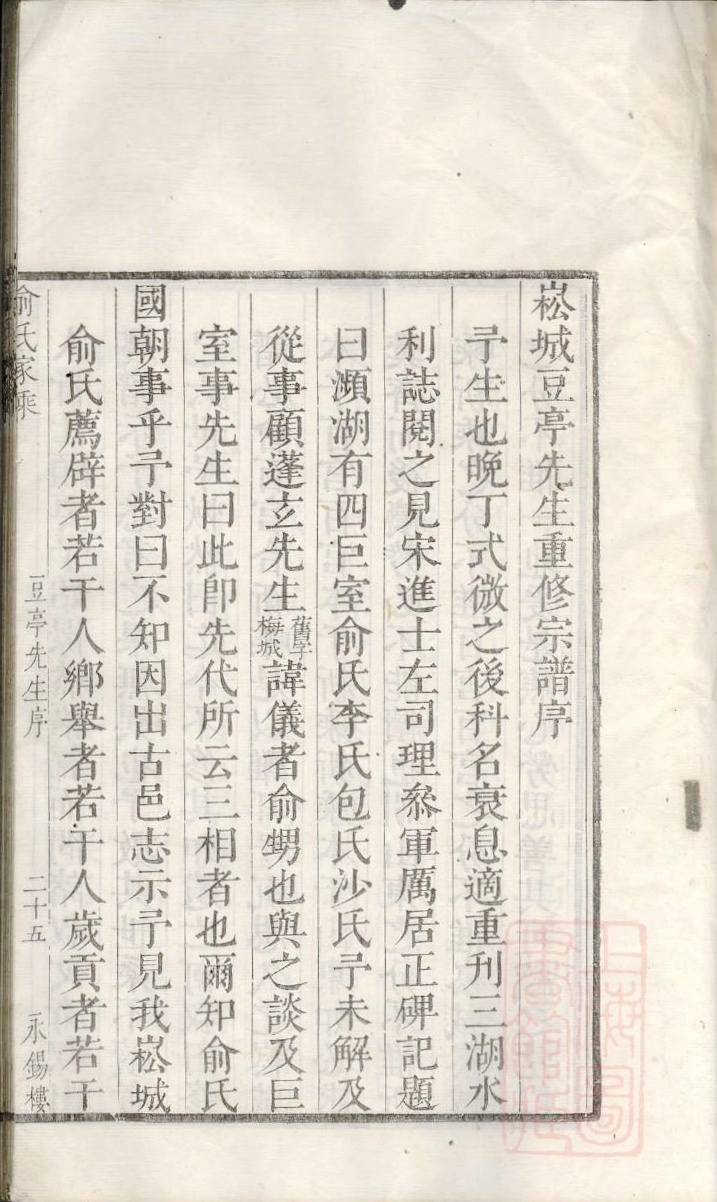 崧城豆亭先生重修宗譜序
予生也晚丁式微之後科名衰息適重刊三湖水
利誌閱之見宋進士左司理叅軍厲居正碑記題
曰瀕湖有四巨室俞氏李氏包氏沙氏予未解及
從事顧蓬玄先生舊字梅城諱儀者俞甥也與之談及巨
室事先生曰此卽先代所云三相者也爾知俞氏
國朝事乎予對曰不知因出古邑志示予見我崧城
俞氏薦辟者若干人鄉舉者若干人歲貢者若干
俞氏家乘
豆亭先生序
二十五
永錫樓
上海圖書館藏